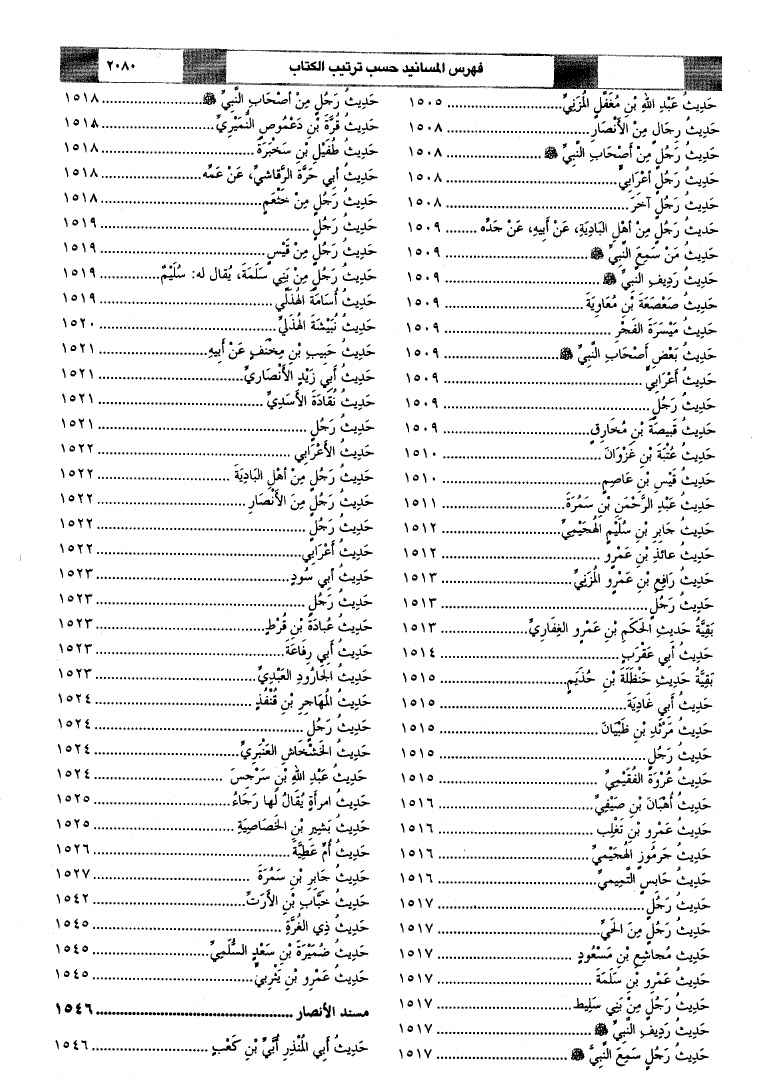 فهرس المسانيد حسب ترتيب الكتاب ٢٠٨٠
حَدِيثُ عَبْدِ اللهِ بْنِ مُغَفَّلٍ المُزَنِيِّ ١٥٠٥
حَدِيثُ رِجَالٍ مِنَ الأَنْصَارِ ١٥٠٨
حَدِيثُ رَجُلٍ مِنْ أَصْحَابِ النَّبِيِّ ﷺ ١٥٠٨
حَدِيثُ رَجُلٍ أَعْرَابِيٍّ ١٥٠٨
حَدِيثُ رَجُلٍ آخَرَ ١٥٠٨
حَدِيثُ رَجُلٍ مِنْ أَهْلِ البَادِيَةِ، عَنْ أَبِيهِ، عَنْ جَدِّهِ ١٥٠٩
حَدِيثُ مَنْ سَمِعَ النَّبِيَّ ﷺ ١٥٠٩
حَدِيثُ رَدِيفِ النَّبِيِّ ﷺ ١٥٠٩
حَدِيثُ صَعْصَعَةَ بْنِ مُعَاوِيَةَ ١٥٠٩
حَدِيثُ مَيْسَرَةَ الفَجْرِ ١٥٠٩
حَدِيثُ بَعْضِ أَصْحَابِ النَّبِيِّ ﷺ ١٥٠٩
حَدِيثُ أَعْرَابِيٍّ ١٥٠٩
حَدِيثُ رَجُلٍ ١٥٠٩
حَدِيثُ قَبِيصَةَ بْنِ مُخَارِقٍ ١٥٠٩
حَدِيثُ عُتْبَةَ بْنِ غَزْوَانَ ١٥١٠
حَدِيثُ قَيْسِ بْنِ عَاصِمٍ ١٥١٠
حَدِيثُ عَبْدِ الرَّحْمَنِ بْنِ سَمُرَةَ ١٥١١
حَدِيثُ جَابِرِ بْنِ سُلَيْمٍ الهُجَيْمِيِّ ١٥١٢
حَدِيثُ عَائِذِ بْنِ عَمْرٍو ١٥١٢
حَدِيثُ رَافِعِ بْنِ عَمْرٍو المُزَنِيِّ ١٥١٣
حَدِيثُ رَجُلٍ ١٥١٣
بَقِيَّةُ حَدِيثِ الحَكَمِ بْنِ عَمْرٍو الغِفَارِيِّ ١٥١٣
حَدِيثُ أَبِي عَقْرَبٍ ١٥١٤
بَقِيَّةُ حَدِيثِ حَنْظَلَةَ بْنِ حُذَيَمٍ ١٥١٥
حَدِيثُ أَبِي غَادِيَةَ ١٥١٥
حَدِيثُ مَرْثَدِ بْنِ ظَبْيَانَ ١٥١٥
حَدِيثُ رَجُلٍ ١٥١٥
حَدِيثُ عُرْوَةَ الفُقَيْمِيِّ ١٥١٥
حَدِيثُ أُهْبَانَ بْنِ صَيْفِيٍّ ١٥١٦
حَدِيثُ عَمْرِو بْنِ تَغْلِبَ ١٥١٦
حَدِيثُ جَرْمُوزٍ الهُجَيْمِيِّ ١٥١٦
حَدِيثُ حَابِسٍ التَّمِيمِيِّ ١٥١٦
حَدِيثُ رَجُلٍ ١٥١٧
حَدِيثُ رَجُلٍ مِنَ الحَيِّ ١٥١٧
حَدِيثُ مُجَاشِعِ بْنِ مَسْعُودٍ ١٥١٧
حَدِيثُ عَمْرِو بْنِ سَلَمَةَ ١٥١٧
حَدِيثُ رَجُلٍ مِنْ بَنِي سَلِيطٍ ١٥١٧
حَدِيثُ رَدِيفِ النَّبِيِّ ﷺ ١٥١٧
حَدِيثُ رَجُلٍ سَمِعَ النَّبِيَّ ﷺ ١٥١٧
حَدِيثُ رَجُلٍ مِنْ أَصْحَابِ النَّبِيِّ ﷺ ١٥١٨
حَدِيثُ قُرَّةَ بْنِ دَعْمُوصٍ النُّمَيْرِيِّ ١٥١٨
حَدِيثُ طُفَيْلِ بْنِ سَخْبَرَةَ ١٥١٨
حَدِيثُ أَبِي حَرَّةَ الرَّقَاشِيِّ، عَنْ عَمِّهِ ١٥١٨
حَدِيثُ رَجُلٍ مِنْ خَثْعَمٍ ١٥١٨
حَدِيثُ رَجُلٍ ١٥١٩
حَدِيثُ رَجُلٍ مِنْ قَيْسٍ ١٥١٩
حَدِيثُ رَجُلٍ مِنْ بَنِي سَلَمَةَ، يُقال له: سُلَيْمٌ ١٥١٩
حَدِيثُ أُسَامَةَ الهُذَلِيِّ ١٥١٩
حَدِيثُ نُبَيْشَةَ الهُذَلِيِّ ١٥٢٠
حَدِيثُ حَبِيبِ بْنِ مِخْنَفٍ عَنْ أَبِيهِ ١٥٢١
حَدِيثُ أَبِي زَيْدٍ الأَنْصَارِيِّ ١٥٢١
حَدِيثُ نُقَادَةَ الأَسَدِيِّ ١٥٢١
حَدِيثُ رَجُلٍ ١٥٢١
حَدِيثُ الأَعْرَابِي ١٥٢٢
حَدِيثُ رَجُلٍ مِنْ أَهْلِ البَادِيَةَ ١٥٢٢
حَدِيثُ رَجُلٍ مِنَ الأَنْصَارِ ١٥٢٢
حَدِيثُ رَجُلٍ ١٥٢٢
حَدِيثُ أَعْرَابِيٍّ ١٥٢٢
حَدِيثُ أَبِي سُودٍ ١٥٢٣
حَدِيثُ رَجُلٍ ١٥٢٣
حَدِيثُ عُبَادَةَ بْنِ قُرْطٍ ١٥٢٣
حَدِيثُ أَبِي رِفَاعَةَ ١٥٢٣
حَدِيثُ الجَارُودِ العَبْدِيِّ ١٥٢٣
حَدِيثُ المُهَاجِرِ بْنِ قُنْفُذٍ ١٥٢٤
حَدِيثُ رَجُلٍ ١٥٢٤
حَدِيثُ الخَشْخَاشِ العَنْبَرِيِّ ١٥٢٤
حَدِيثُ عَبْدِ اللهِ بْنِ سَرْجِسَ ١٥٢٤
حَدِيثُ امرأَةٍ يُقَالُ لها رَجَاءُ ١٥٢٥
حَدِيثُ بَشِيرِ بْنِ الخَصَاصِيَةِ ١٥٢٥
حَدِيثُ أُمِّ عَطِيَّةَ ١٥٢٦
حَدِيثُ جَابِرِ بْنِ سَمُرَةَ ١٥٢٧
حَدِيثُ خَبَّابِ بْنِ الأَرَتِّ ١٥٤٢
حَدِيثُ ذِي الغُرَّةِ ١٥٤٥
حَدِيثُ ضُمَيْرَةَ بْنِ سَعْدٍ السُّلَمِيِّ ١٥٤٥
حَدِيثُ عَمْرِو بْنِ يَثْرِبيِّ ١٥٤٥
مسند الأنصار ١٥٤٦
حَدِيثُ أَبِي المُنْذِرِ أُبَيِّ بْنِ كَعْبٍ ١٥٤٦